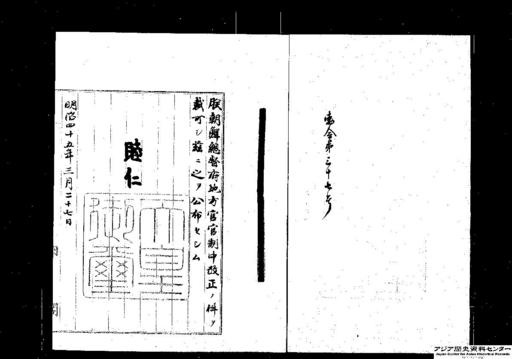 勅令第三十七号
朕朝鮮総督府地方官官制中改正ノ件ヲ
裁可シ茲ニ之ヲ公布セシム
睦仁
天皇御璽
明治四十五年三月二十七日
アジア歴史資料センター
Japan Center for Asian Historical Records